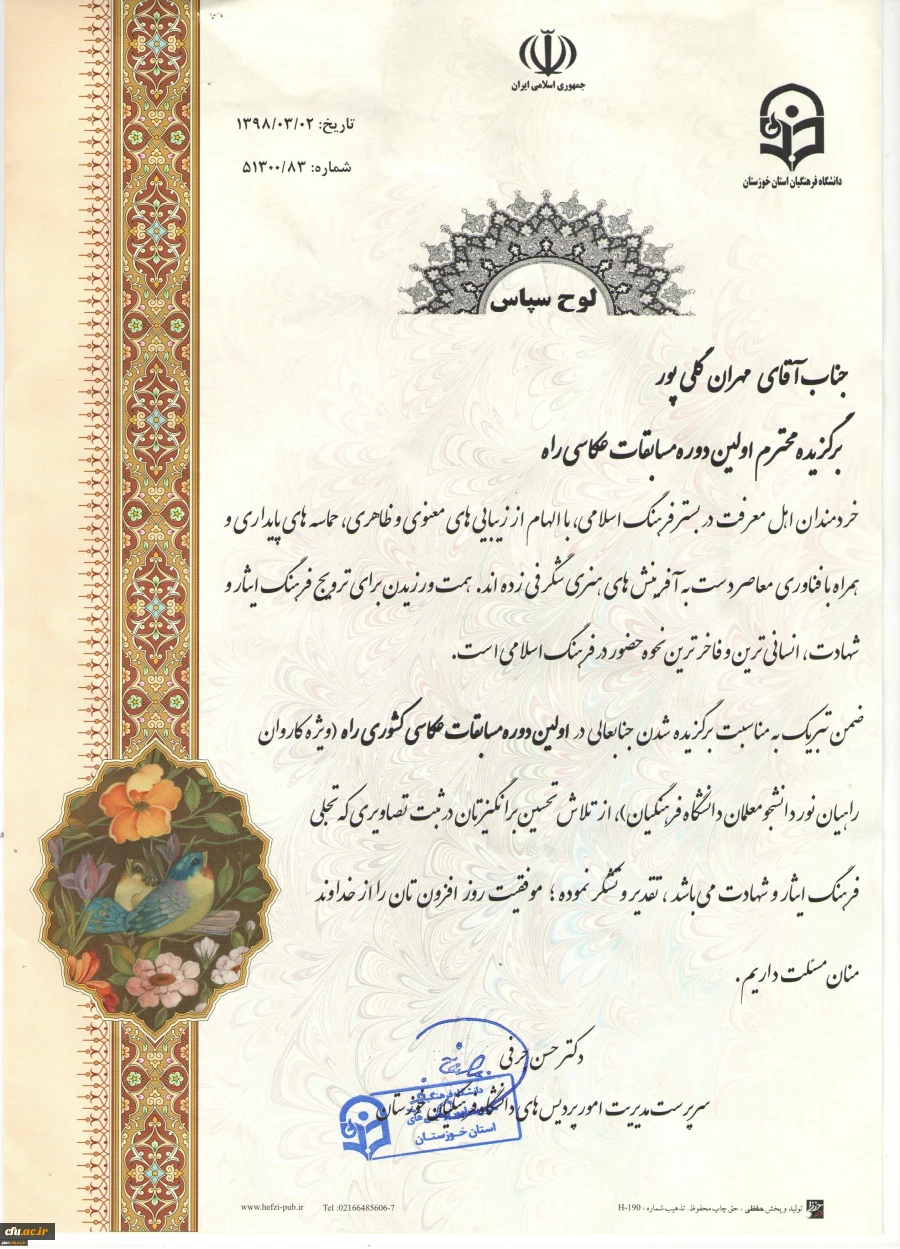 جمهوری اسلامی ایران
دانشگاه فرهنگیان استان خوزستان
تاریخ: ۱۳۹۸/۰۳/۰۲
شماره: ۵۱۳۰۰/۸۳
لوح سپاس
جناب آقای مهران گلی پور
برگزیده محترم اولین دوره مسابقات عکاسی راه
خردمندان اهل معرفت در بستر فرهنگ اسلامی، با الهام از زیبایی های معنوی و ظاهری، حماسه های پایداری و
همراه با فناوری معاصر دست به آفرینش های هنری شگرفی زده اند. همت ورزیدن برای ترویج فرهنگ ایثار و
شهادت، انسانی ترین و فاخرترین نحوه حضور در فرهنگ اسلامی است.
ضمن تبریک به مناسبت برگزیده شدن جنابعالی در اولین دوره مسابقات عکاسی کشوری راه (ویژه کاروان
راهیان نور دانشجو معلمان دانشگاه فرهنگیان)، از تلاش تحسین برانگیزتان در ثبت تصاویری که تجلی
فرهنگ ایثار و شهادت می باشد، تقدیر و تشکر نموده؛ موفقیت روز افزون تان را از خداوند
منان مسئلت داریم.
دکتر حسن حرفی
سرپرست مدیریت امور پردیس های دانشگاه فرهنگیان خوزستان
دانشگاه فرهنگیان
استان خوزستان
تولید و پخش حفظی، حق چاپ محفوظ. تذهیب شماره: H-190
Tel :02166485606-7
www.hefzi-pub.ir
cfu.ac.ir